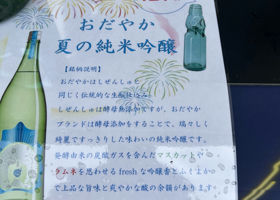 おだやか
夏の純米吟醸
【銘柄説明】
おだやかはしぜんしゅと
同じく伝統的な生酛仕込み。
しぜんしゅは酵母無添加ですが、おだやか
ブランドは酵母添加をすることで、瑞々しく
綺麗ですっきりした味わいの純米吟醸です。
発酵由来の炭酸ガスを含んだマスカットや
ラムネを思わせるfreshな吟醸香とふくよか
で上品な旨味と爽やかな酸の余韻があります